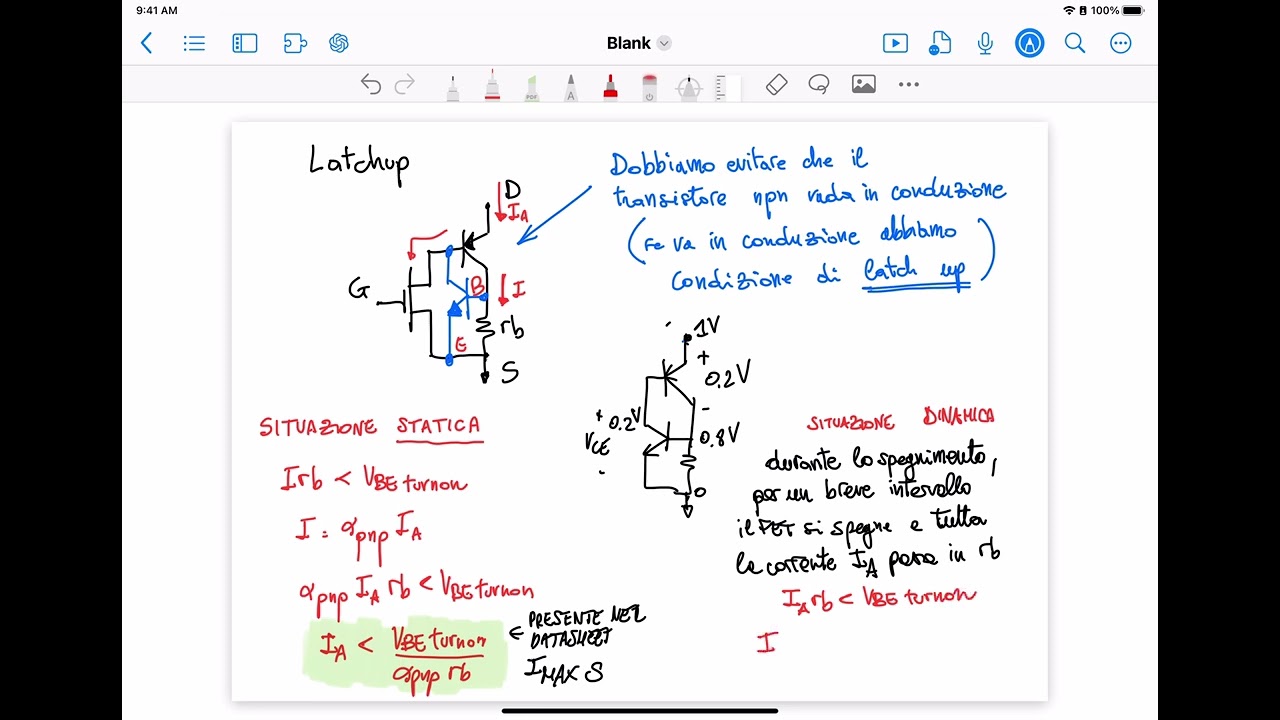 9:41 AM
100%
Blank
Latchup
Dobbiamo evitare che il
transistore npn vada in conduzione
(se va in conduzione abbiamo
condizione di latch up)
D
IA
G
B
I
rb
E
S
1V
+
0.2V
-
+ 0.2V
VCE
-
0.8V
0
SITUAZIONE STATICA
Irb < VBE turnon
I = αpnp IA
αpnp IA rb < VBE turnon
IA < VBE turnon
αpnp rb
← PRESENTE NEL
DATASHEET
IMAX S
SITUAZIONE DINAMICA
durante lo spegnimento,
per un breve intervallo
il FET si spegne e tutta
la corrente IA passa in rb
IA rb < VBE turnon
I